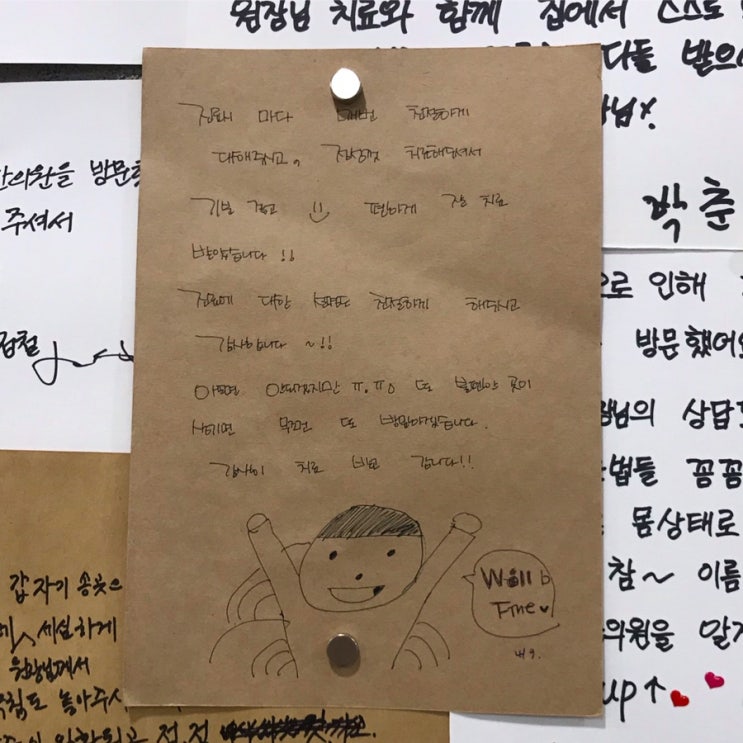 원장님 치료와 함께 집에서 스스로
다들 받으
박춘
한의원을 방문
주셔서
진료시 마다 매번 친절하게
대해주시고, 정성껏 치료해주셔서
기분 좋고 편하게 잘 치료
받았습니다 !!
질문에 대한 설명도 친절하게 해주시고
감사합니다 ~!!
아프면 안되겠지만 ㅠ.ㅠ 또 불편한 곳이
생기면 또 방문하겠습니다.
감사히 치료 받고 갑니다!!
Will b
Fine
으로 인해
방문했어요
원장님의 상담
법들 꼼꼼
몸상태로
참~ 이름
의원을 알게
up↑
갑자기 송곳으
세심하게
원장님께서
침도 놓아주시